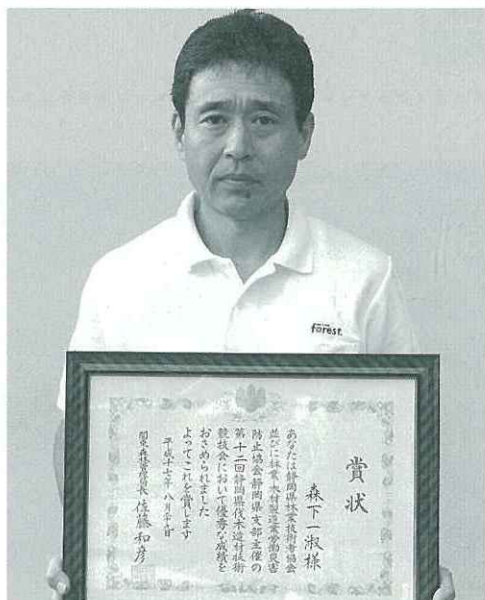 forest.
賞状
森下一淑様
あなたは静岡県林業技術者協会
並びに林業・木材製造業労働災害
防止協会静岡県支部主催の
第十二回静岡県伐木造材技術
競技会において優秀な成績を
おさめられました
よってこれを賞します
平成十七年八月
関東森林管理局長 佐藤和彦